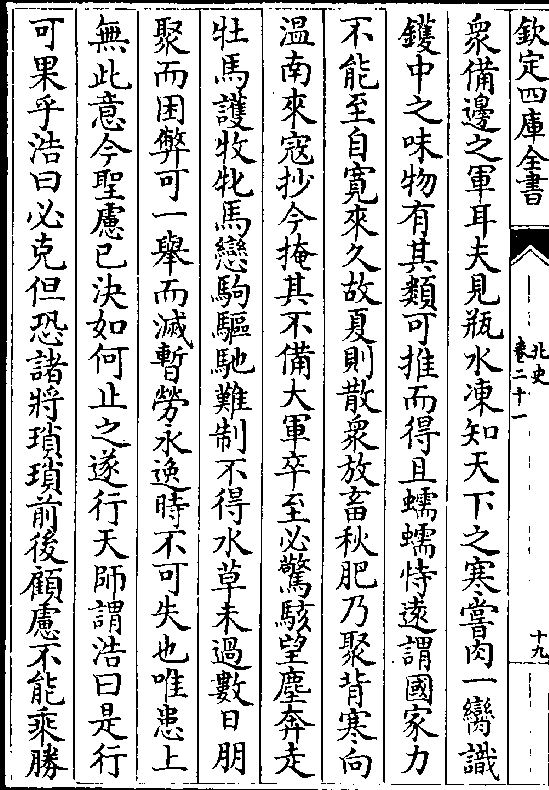 欽定四庫全書
北史
卷二十一
十九
衆備邊之軍耳夫見瓶水凍知天下之寒嘗肉一臠識
鑊中之味物有其類可推而得且蠕蠕恃遠謂國家力
不能至自寛來久故夏則散衆放畜秋肥乃聚背寒向
溫南來寇抄今掩其不備大軍卒至必驚駭望塵奔走
牡馬護牧牝馬戀駒驅馳難制不得水草未過數日朋
聚而困弊可一舉而滅暫勞永逸時不可失也唯患上
無此意今聖慮已決如何止之遂行天師謂浩曰是行
可果乎浩曰必克但恐諸將瑣瑣前後顧慮不能乘勝